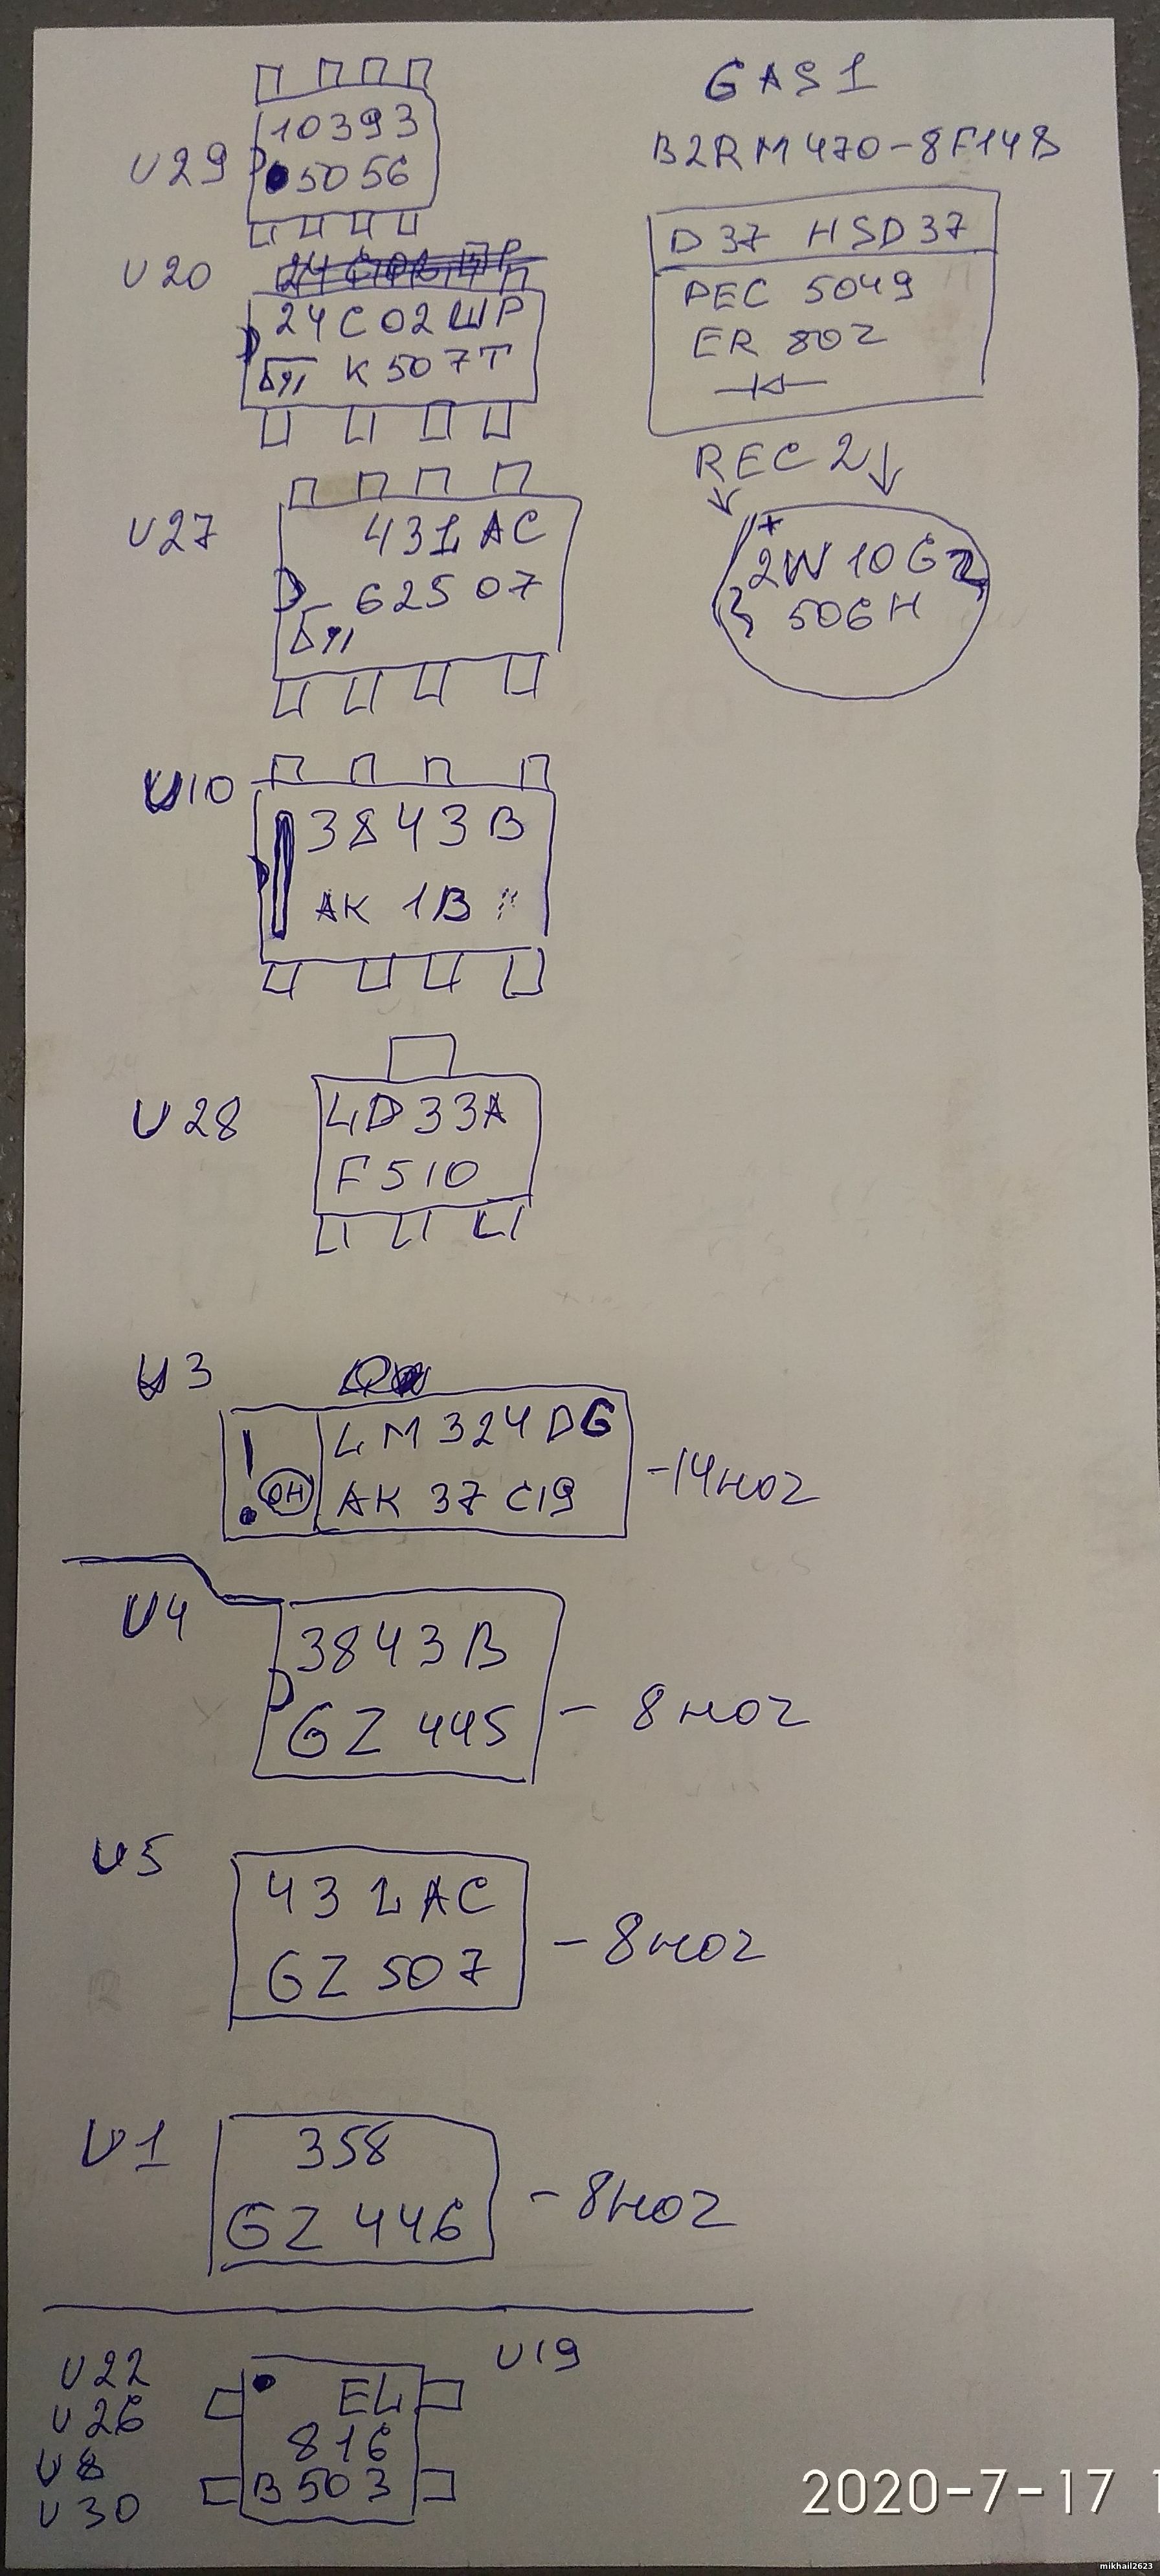 U29
10393
5056
U20
24C02WP
K507T
U27
431AC
62507
U10
3843B
AK 1B
U28
LD33A
F510
U3
LM324DG
ON
AK37C19
-14 НОГ
U4
3843B
GZ445
- 8 НОГ
U5
431AC
GZ507
- 8 НОГ
U1
358
GZ446
- 8 НОГ
U22
U26
U8
U30
EL
816
B503
U19
GAS1
B2RM470-8F14B
D37 HSD37
PEC 5049
ER 802
REC2
+
2W10G
506H
2020-7-17 1
mikhail2623